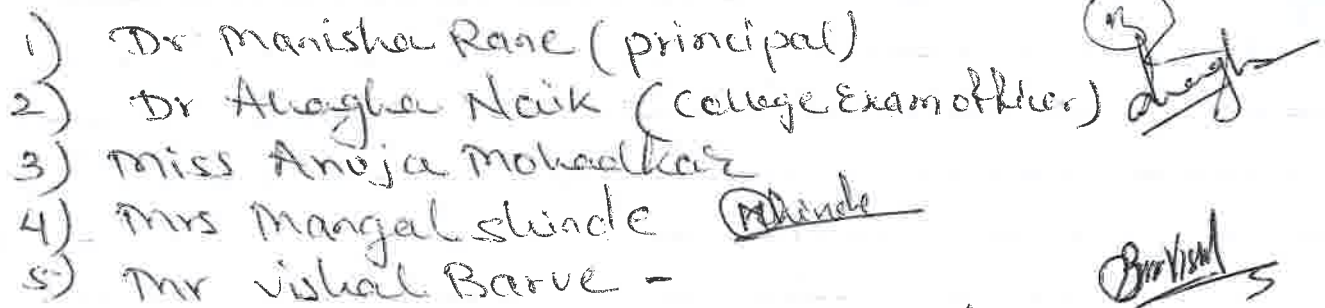 1) Dr Manisha Rane (principal)
2) Dr Anagha Naik (College Exam officer)
3) Miss Anuja Mohadkar
4) Mrs Mangal shinde Mshinde
5) Mr vishal Barve -